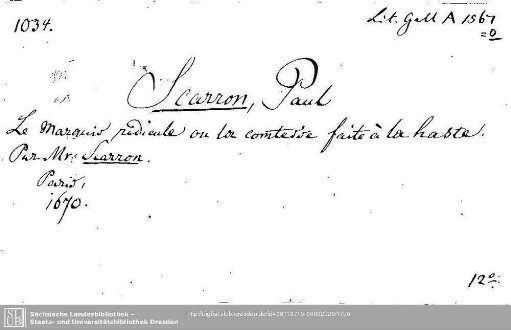 1034.
Lit. Gall A 1567
=0
Scarron, Paul
Le Marquis ridicule ou la comtesse faite à la haste.
Par Mr. Scarron.
Paris,
1670.
12°.
Sächsische Landesbibliothek –
Staats- und Universitätsbibliothek Dresden